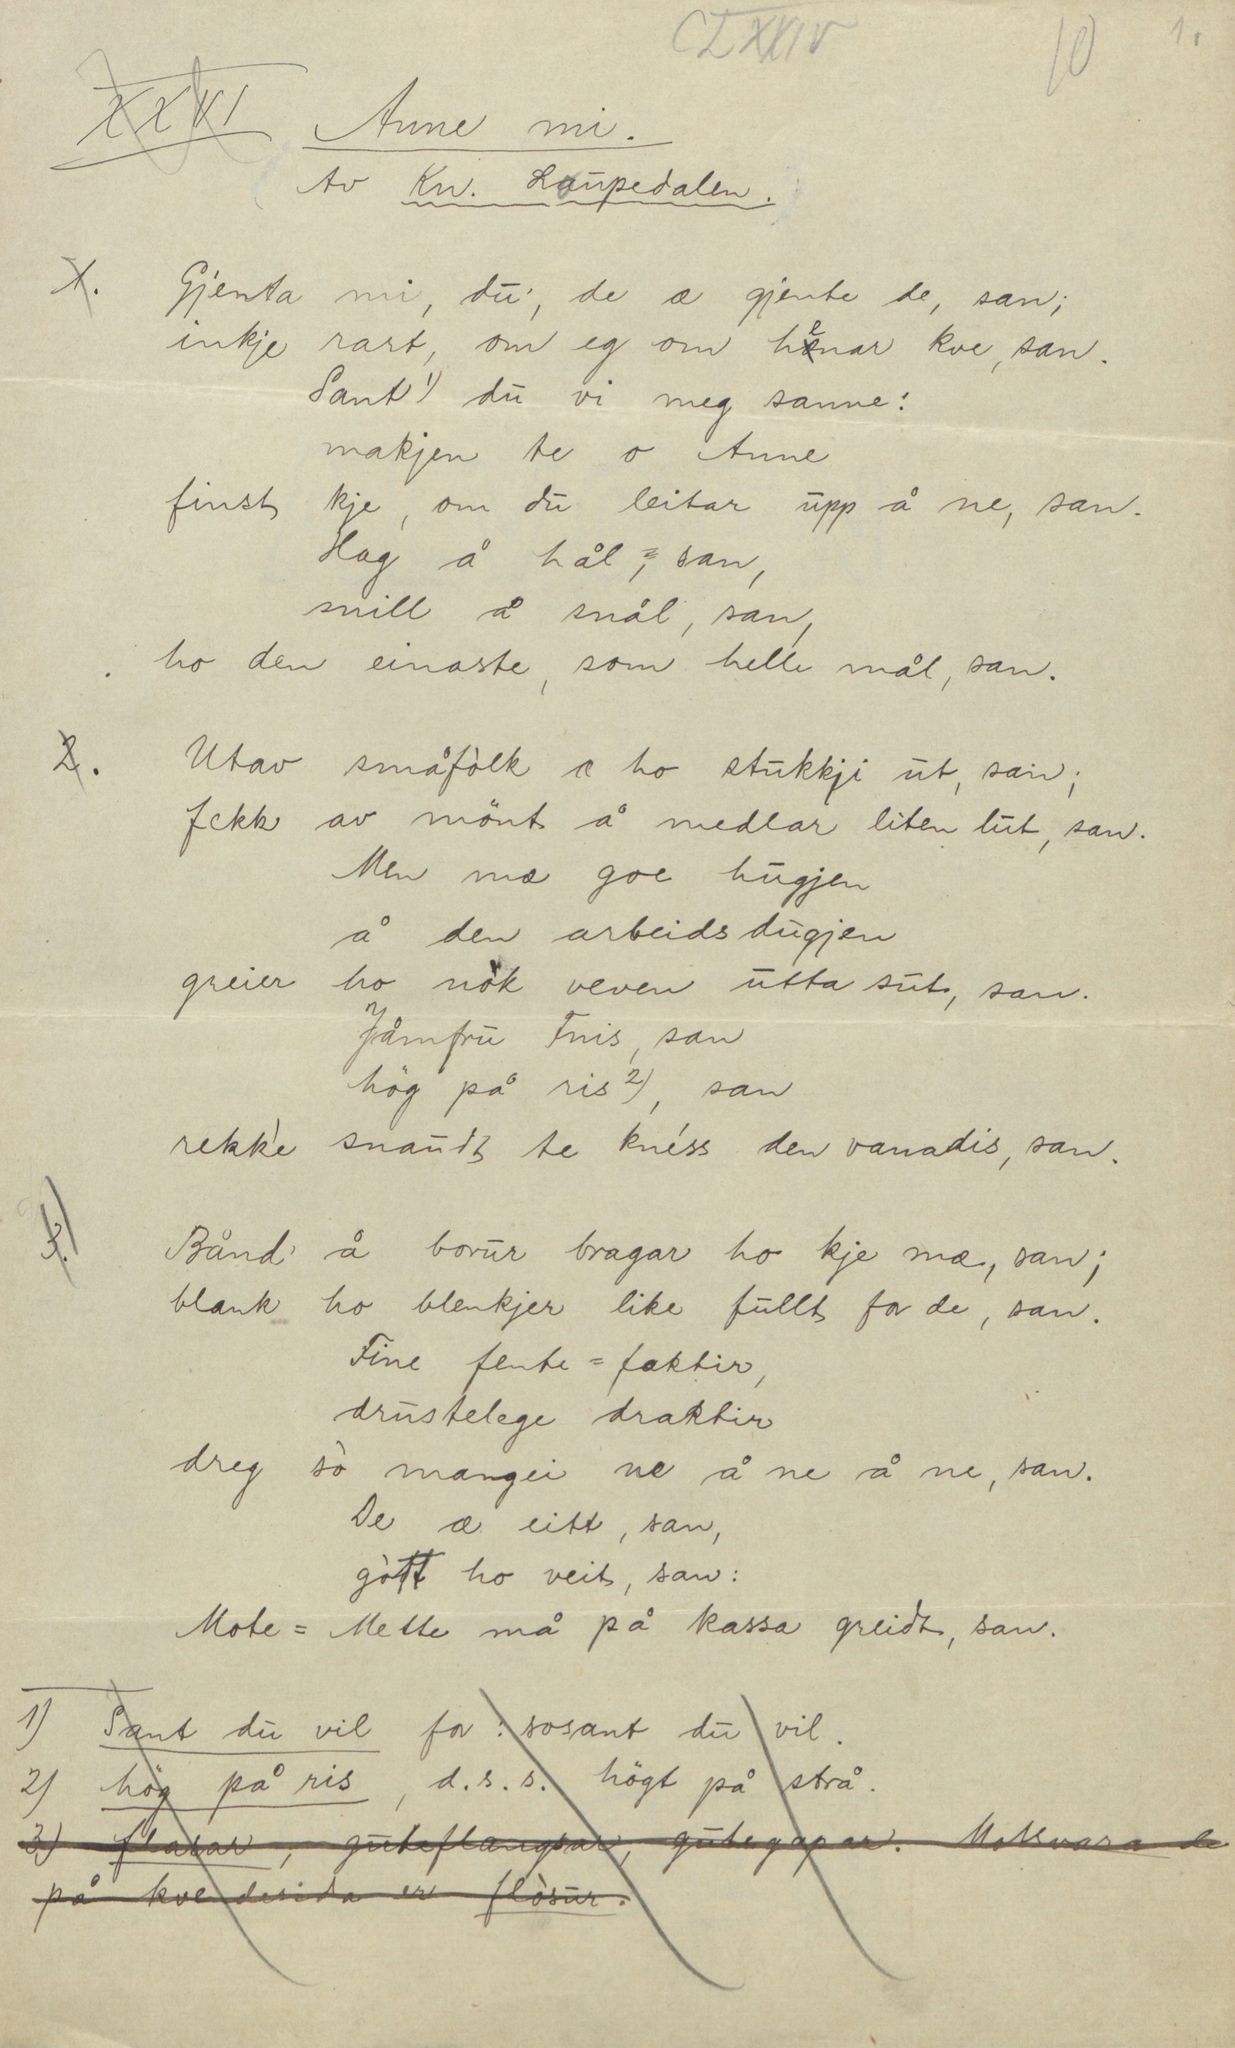 CLXXIV 10 1.
XXVI Anne mi.
Av Kn. Laupedalen.
1. Gjenta mi, du', de æ gjente de, san;
inkje rart, om eg om henar kve, san.
Sant 1) du vi meg sanne:
makjen te o Anne
finst kje, om du leitar upp å ne, san.
Hag å hål, san,
snill å snål, san,
ho den einaste, som helle mål, san.
2. Utav småfòlk æ ho stukkji ut, san;
fekk av mönt å medlar liten lut, san.
Men mæ goe hugjen
å den arbeidsdugjen
greier ho nòk veven utta sut, san.
Jåmfru Fnis, san
hög på ris 2), san
rekk'e snaudt te knéss den vanadis, san.
3. Bånd' å borur bragar ho kje mæ, san;
blank ho blenkjer like fullt for de, san.
Fine fente=faktir,
drustelege draktir
dreg sò mangei ne å ne å ne, san.
De æ eitt, san,
gòtt ho veit, san:
Mote=Mette må på kassa greidt, san.
1) Sant du vil for: sosant du vil.
2) hög på ris, d.s.s. högt på strå.
3) flasar, guteflangsar, gutegapar. Motsvara de
på kvendesida er flòsur.